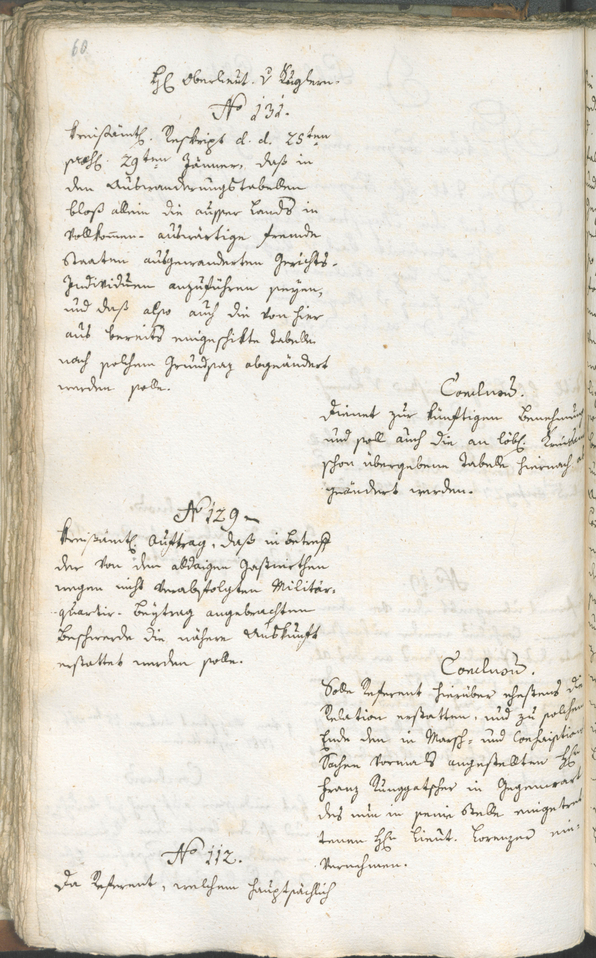 60.
H: Oberlieut. v Kuglern.
No 131.
Kreißämtl. Reskript d. d. 25ten
präs. 29ten Jänner, daß in
den Auswanderungstabellen
bloß allein die ausser Lands in
vollkommen auswärtige fremde
Staaten ausgewanderten Gerichts-
Individuen anzuführen seyen,
und daß also auch die von hier
aus bereits eingeschikte Tabelle
nach solchem Grundsaz abgeändert
werden solle.
Conclusum.
Dienet zur künftigen Benehmung
und soll auch die an löbl.
schon übergebene Tabelle hiernach ab
geändert werden.
No 129
Kreisämtl. Auftrag, daß in Betreff
der von den alldaigen Gastwirthen
wegen nicht verabfolgten Militär-
quartir-Beytrag angebrachten
Beschwerde die nähere Auskunft
erstattet werden solle.
Conclusum.
Solle Referent hierüber ehestens die
Relation erstatten, und zu solchem
Ende den in Marsch- und Conscription
Sachen vormals angestellten H:
Franz Runggatscher in Gegenwart
des nun in seine Stelle eingetret
tenen H: Lieut. Lorenzer ein-
vernehmen.
No 112.
Da Referent, welchem hauptsächlich